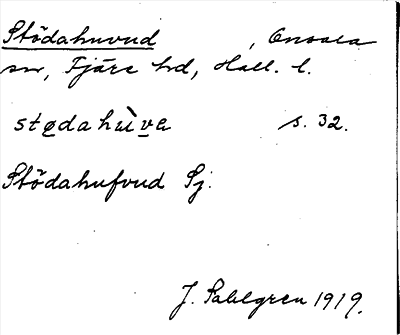 Stödahuvud , Onsala
sn, Fjäre hd, Hall. l.
stødahùvə s. 32.
Stödahufvud Sj.
J. Sahlgren 1919.